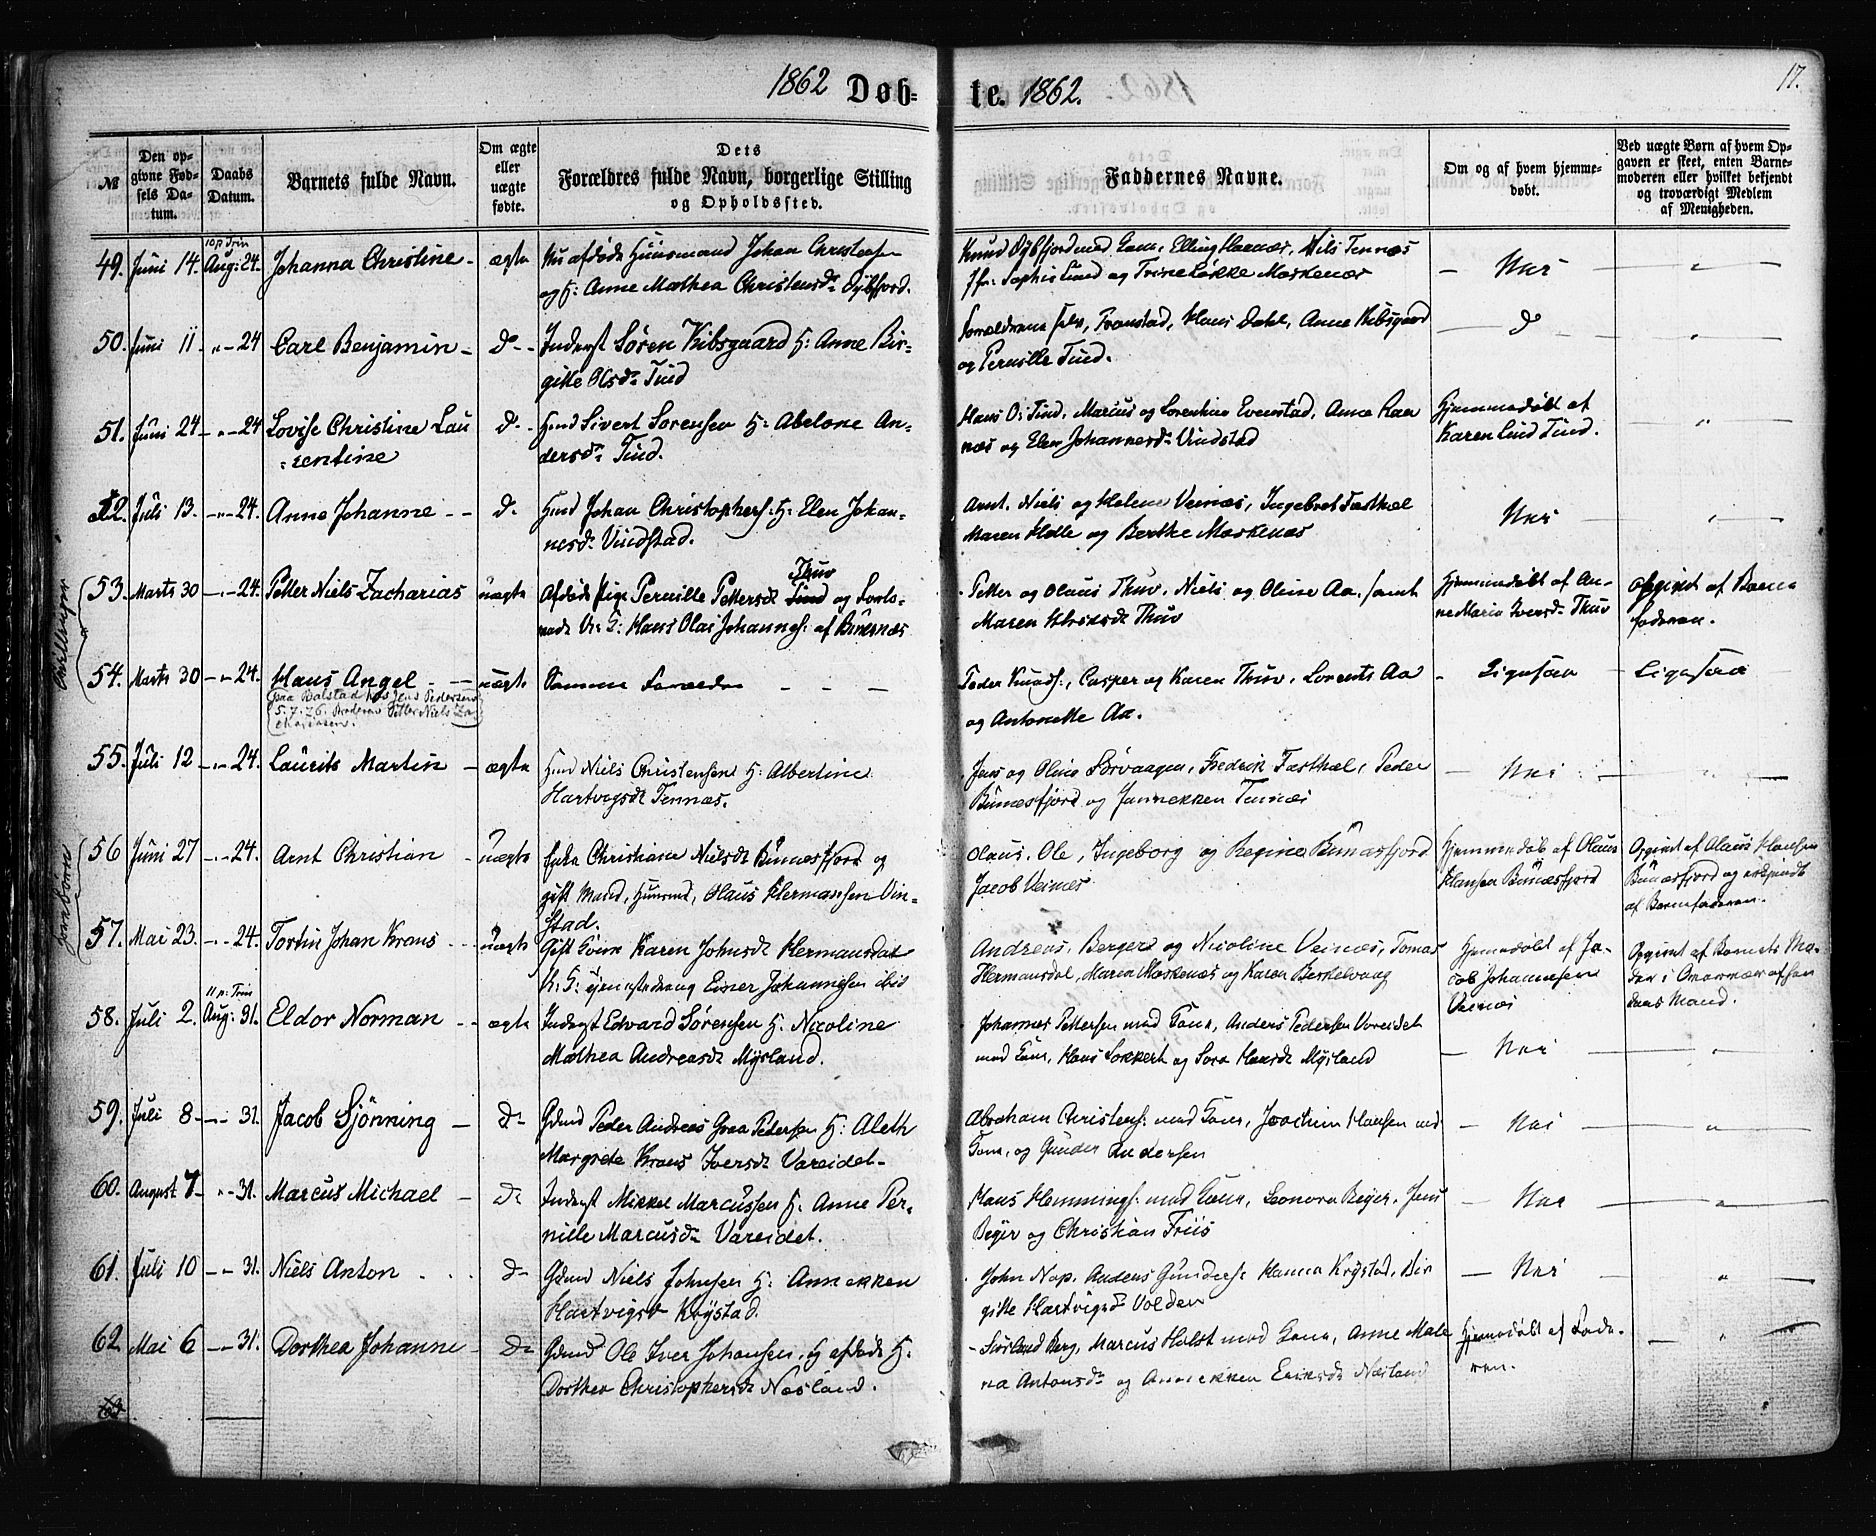 1862 Døb-
te. 1862.
17.
№
Den op-
givne Fød-
sels Da-
tum.
Daabs
Datum.
Barnets fulde Navn.
Om ægte
eller
uægte
fødte.
Dets
Forældres fulde Navn, borgerlige Stilling
og Opholdssted.
Faddernes Navne.
Om og af hvem hjemme-
døbt.
Ved uægte Børn af hvem Op-
gaven er skeet, enten Barne-
moderen eller hvilket bekjendt
og troværdigt Medlem
af Menigheden.
10 p Trin
49. Juni 14. Aug: 24. Johanna Christine - ægte afdøde Huusmand Johan Christens
og H: Anne Mathea Christensdr Dybfjord.
Knud Dybfjord med Kone, Elling Hornæs, Nils Tennæs
Jfr: Sophie Lund og Trine Løkke Moskenæs - Nei - "
50. Juni 11 - " - 24 Carl Benjamin - do - Inderst Søren Kibsgaard H: Anne Bir-
gitte Olsdr Tind
Forældrene selv, Transtad, Hans Dahl, Anne Kibsgaard
og Pernille Tind. - do - "
51. Juni 24 - " - 24 Lovise Christine Lau
=rentine
do - Hmd Sivert Sørensen H: Abelone An-
dersdr Tind.
Hans O: Tind, Marcus og Lorentine Evenstad, Anne Ram
næs og Elen Johannesdr Vindstad
Hjemmedøbt af
Karen Lind Tind. - "
52. Juli 13. - " - 24. Anne Johanne - - do - Hmd Johan Christophers: H: Elen Johan-
nesdr Vindstad.
Arnt, Niels og Helene Veinæs, Ingebret Festhæl
Maren Holle og Berthe Moskenæs
Nei - "
Tvillinger
53. Marts 30 - " - 24. Petter Niels Zacharias uægte Afdøde Pige Pernille Pettersdr Tind Thuv og Forlo-
vede U: G: Hans Olai Johannes: af Bunernæs
Petter og Olaus Thuv, Niels og Oline Aa, samt
Maren Thuv
Hjemmedøbt af An-
ne Maria Iversdr Thuv
Opgivet af Barne
faderen.
54. Marts 30 - " - 24. Hans Angel - - uægte Samme Forældre - - -
paa Balstad hos Jens Pedersen
5.7.26. Broderen Petter Niels Za
chariassen.
Peder Knuds:, Casper og Karen Thuv, Lorents Aa
og Antonette Aa.
- Ligesaa Ligesaa
55. Juli 12 - " - 24. Laurits Martin - ægte Hmd Niels Christensen H: Albertine
Hartvigsdr Tennæs.
Jens og Oline Sørvaagen, Fredrik Festhæl, Peder
Bunæsfjord og Jannekken Tennæs
- Nei - "
56 Juni 27 - " - 24. Arnt Christian - uægte Enke Christiane Nielsdr Bunæsfjord og
gift Mand, Huusmd, Olaus Hermansen Vin-
stad.
Olaus, Ole, Ingeborg og Regine Bunæsfjord
Jacob Veinæs
Hjemmedøb af Olaus
Hansen Bunæsfjord
Opgivet af Olaus Hansen
Bunæsfjord og
af Barnefaderen.
57. Mai 23. - " - 24. Tortin Johan Kraus - - uægte Gift Kone Karen Johnsdr Hermansdal
U: G: tjenestedreng Einer Johannesen ibid
Andreas, Berger og Nicoline Veinæs, Tomas
Hermansdal, Maria Moskenæs og Karen Berkelvaag
Hjemmedøbt af Ja-
cob Johannesen
Veinæs
Opgivet af Barnets Mo-
der i af hen
des Mand.
11 p: Trin
58. Juli 2. Aug: 31. Eldor Norman - - ægte Inderst Edvard Sørensen H: Nicoline
Mathea Andreasdr Mysland.
Johannes Pettersen med Kone, Anders Pedersen Voreidet
med Kone, Hans Lokkert og Sara Hansdr Mysland
- Nei - "
59. Juli 8 - " - 31. Jacob Sjönning - do - Gdmd Peder Andreas Graa Pedersen H: Aleth
Margrete Kraus Iversdr Vareidet -
Abraham Christens: med Kone, Joachim Hansen med
Kone, og Gunder Andersen
- Nei - "
60. August 7 - " - 31. Marcus Michael - do Inderst Mikkel Marcussen H: Anne Per-
nille Marcusdr Vareidet.
Hans Hemmings: med Kone, Leonora Beyer, Jens
Beyer og Christian Friis
- Nei - "
61. Juli 10 - - 31. Niels Anton . . . do - Gdmd Niels Johnsen H: Annekken
Hartvigsdr Krystad.
John Nap, Anders Gunders: Hanna Krystad, Bir
gitte Hartvigsdr Volden
- Nei - "
62. Mai 6 - - 31. Dorthea Johanne - do - Gdmd Ole Iver Johansen, og afdøde H:
Dorthea Christophersdr Næsland.
- Berg, Marcus Holst med Kone, Anne Male
na Antonsdr og Annekken Eriksdr Næsland
Hjemmedøbt af Fade-
ren. - "
63